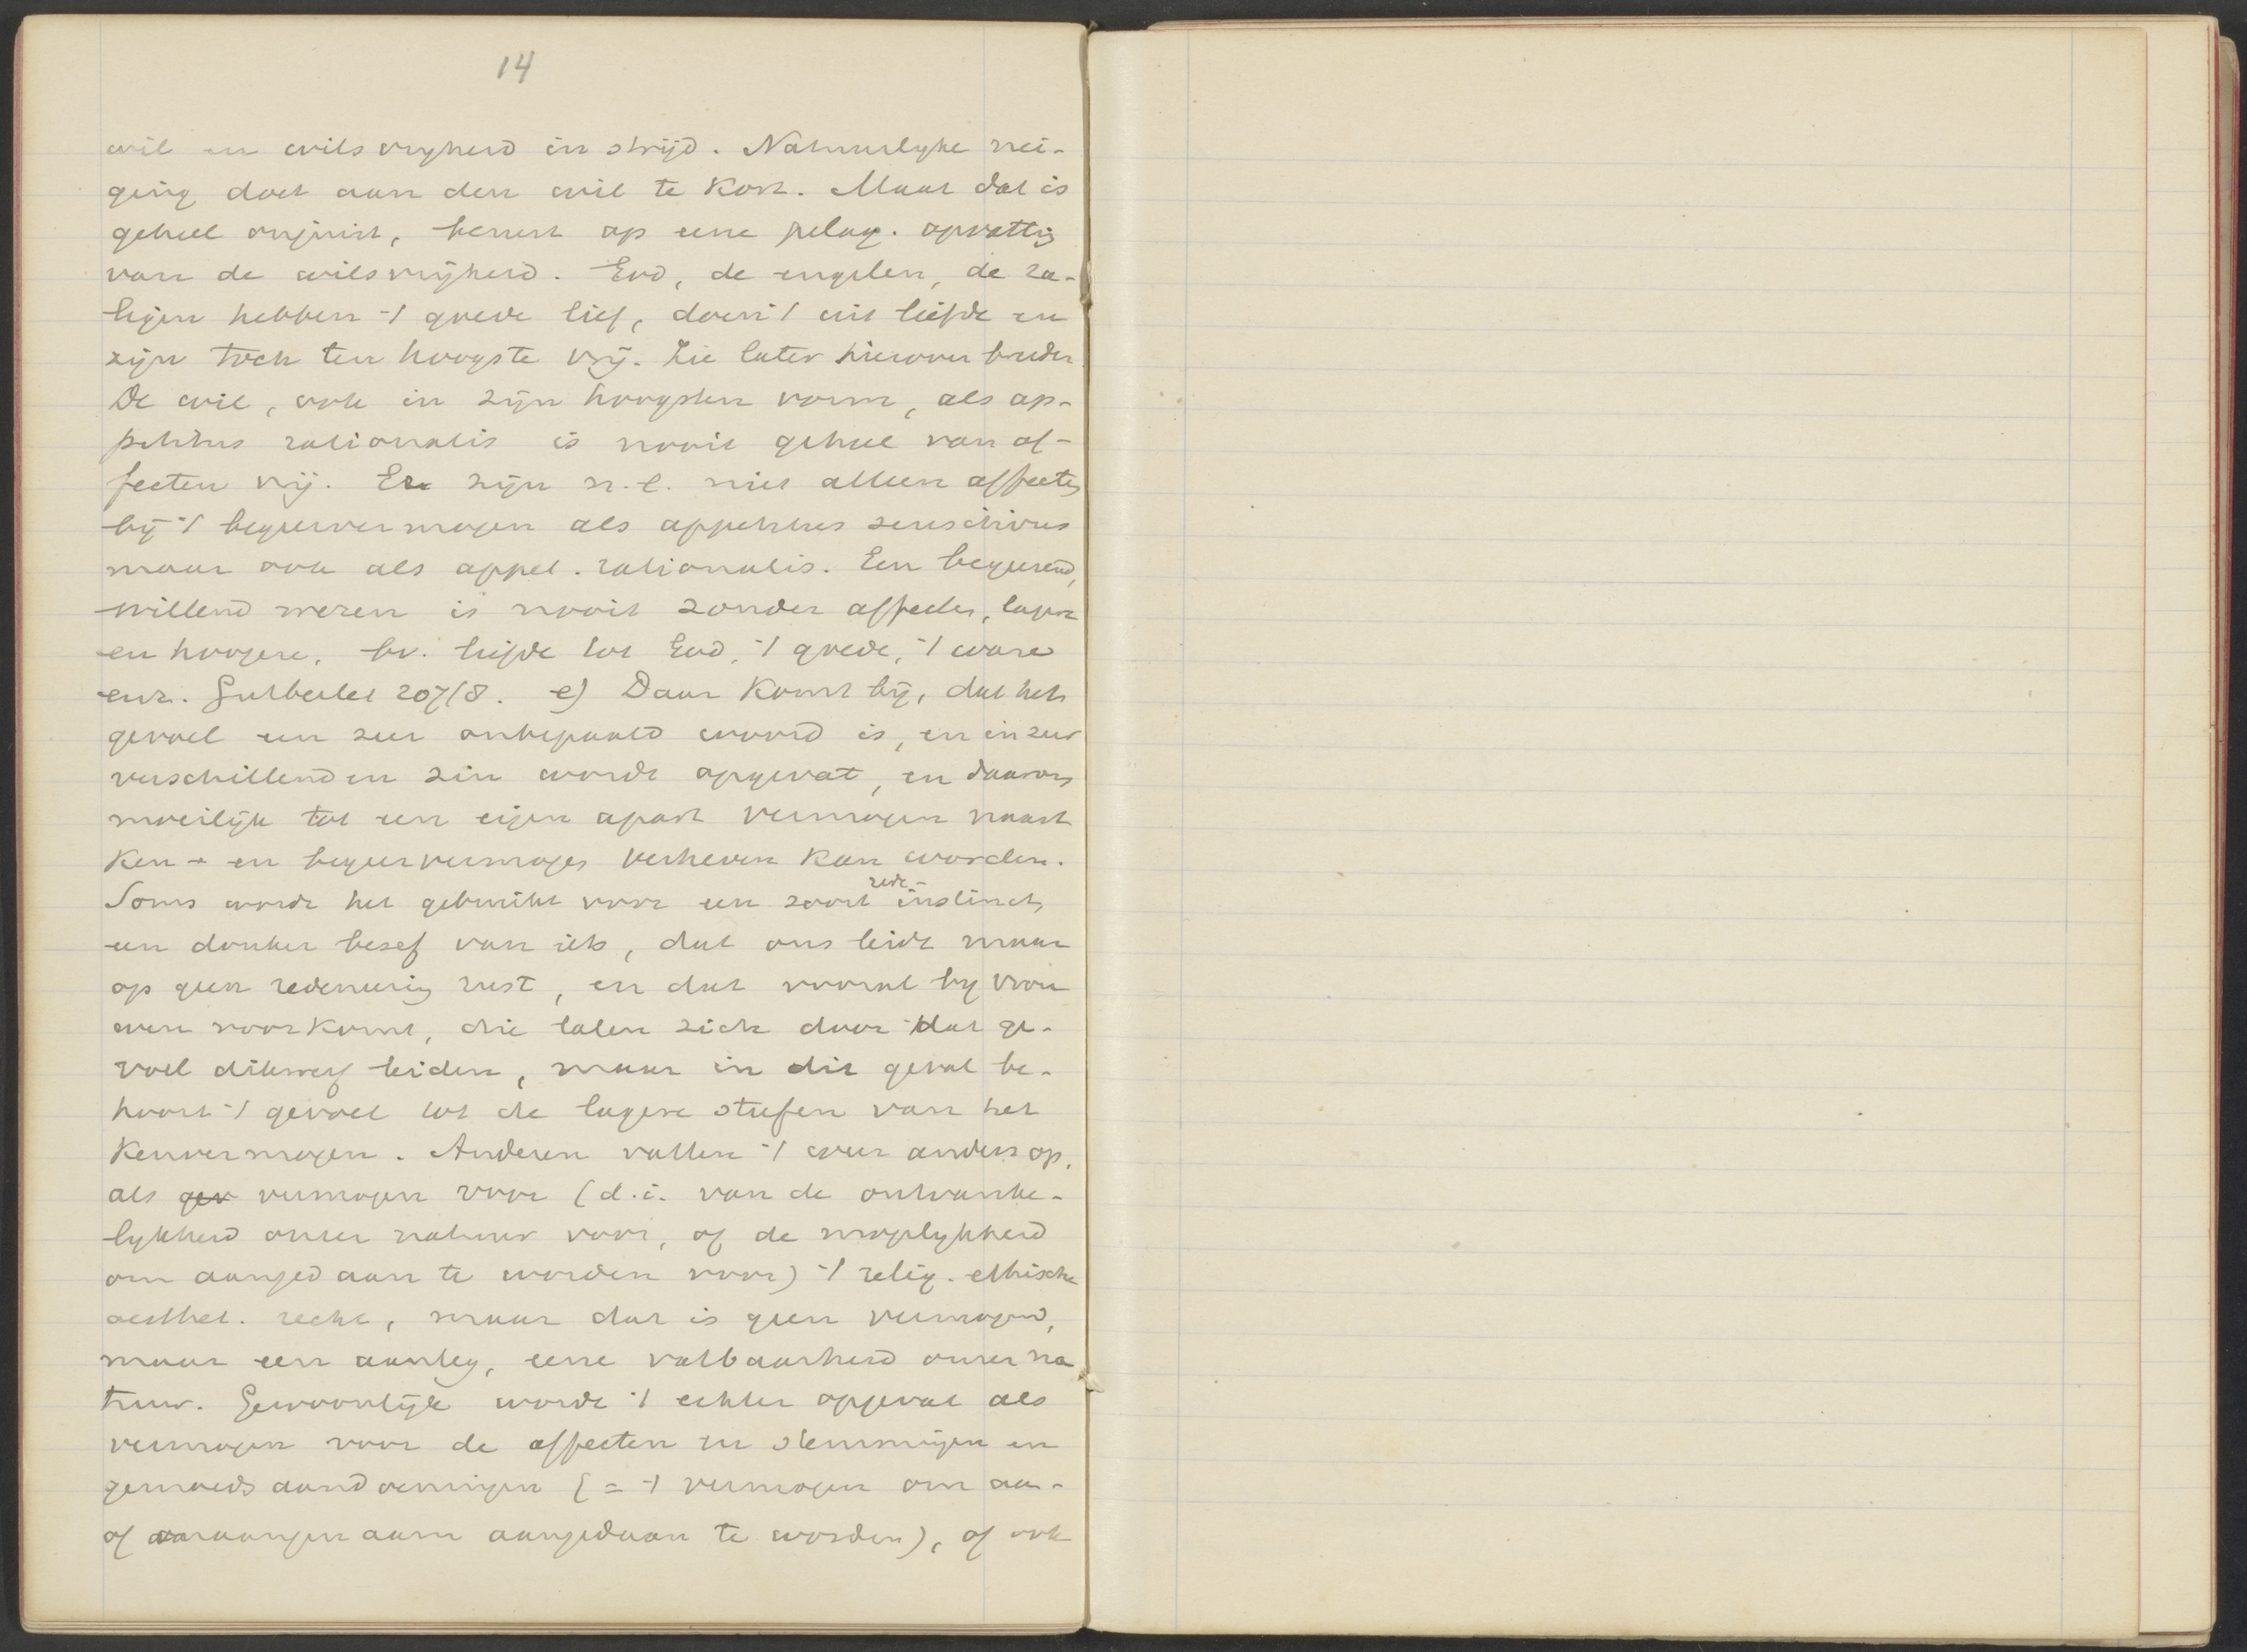 14
wil en wilsvrijheid in strijd. Natuurlyke nei-
ging doet aan den wil te kort. Maar dat is
geheel onjuist, berust op eene pelag. opvatting
van de wilsvrijheid. God, de engelen, de za-
ligen hebben 't goede lief, doen 't uit liefde en
zijn toch ten hoogste vrij. Zie later hierover breder
De wil, ook in zijn hoogsten vorm, als ap-
petitus rationalis is nooit geheel van af-
fecten vrij. Er zijn n.l. niet alleen affecten
bij 't begeervermogen als appetitus sensitivus
maar ook als appet. rationalis. Een begeerend,
willend wezen is nooit zonder affecten, lagere
en hoogere, bv. liefde tot God, 't goede, 't ware
enz. Gutberlet 207/8. e) Daar komt bij, dat het
gevoel een zeer onbepaald woord is, en in zeer
verschillenden zin wordt opgevat, en daarom
moeilijk tot een eigen apart vermogen naast
Ken- en begeervermogen verheven kan worden.
Soms wordt het gebruikt voor een soort rede-instinct,
een donker besef van iets, dat ons leidt maar
op geen redeneering rust, en dat vooral by vrou
wen voorkomt, die laten zich door dat ge-
voel dikwerf leiden, maar in dit geval be-
hoort 't gevoel tot de lagere stufen van het
Kenvermogen. Anderen vatten 't weer anders op,
als gev vermogen voor (d.i. van de ontvanke-
lykheid onzer natuur voor, of de mogelykheid
om aangedaan te worden voor) 't relig. ethische
aesthet. rechte, maar dat is geen vermogen,
maar een aanleg, eene vatbaarheid onzer na
tuur. Gewoonlijk wordt 't echter opgevat als
vermogen voor de affecten en stemmingen en
gemoedsaandoeningen (= 't vermogen om aan-
of onaangenaam aangedaan te worden), of ook